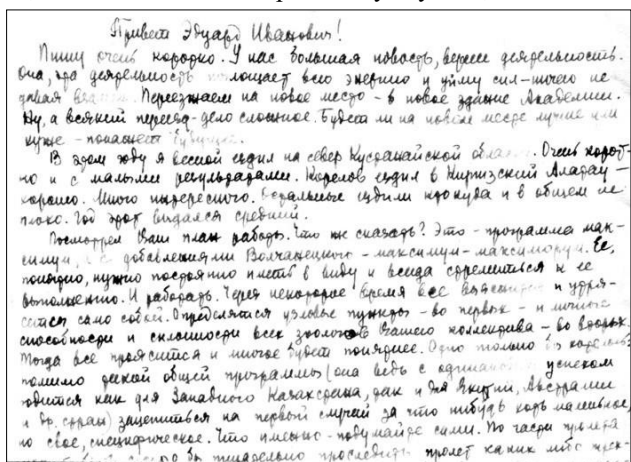 Привет Эдуард Иванович!
Пишу очень коротко. У нас большая новость, вернее деятельность.
Она, эта деятельность поглощает всю энергию и уйму сил – ничего не
давая взамен. Переезжаем на новое место – в новое здание Академии.
Ну, а всякий переезд – дело сложное. Будет ли на новом месте лучше или
хуже – покажет будущее.
В этом году я весной ездил на север Кустанайской области. Очень корот-
но и с малыми результатами. Корелов ездил в Киргизский Алатау –
хорошо. Много интересного. Остальные ездили кто куда и в общем не
плохо. Год этот выдался средний.
Посмотрел Ваш план работ. Что же сказать? Это – программа мак-
симум, а с добавлениями Волчанецкого – максимум – максиморум. Ее,
понятно, нужно постоянно иметь в виду и всегда стремиться к ее
выполнению. И работать. Через некоторое время все выяснится и утря-
сется само собой. Определятся узловые пункты – во первых – и личные
способности и склонности всех зоологов Вашего коллектива – во вторых.
Тогда все прояснится и многое будет понятнее. Одно только
помимо такой общей программы (она ведь с одинаковым успехом
годится как для Западного Казахстана, так и для Якутии, Австралии
и др. стран) зацепиться на первый случай за что нибудь хоть маленькое,
но свое, специфическое. Что именно – подумайте сами. По части
бы тщательно проследить пролет каких либо